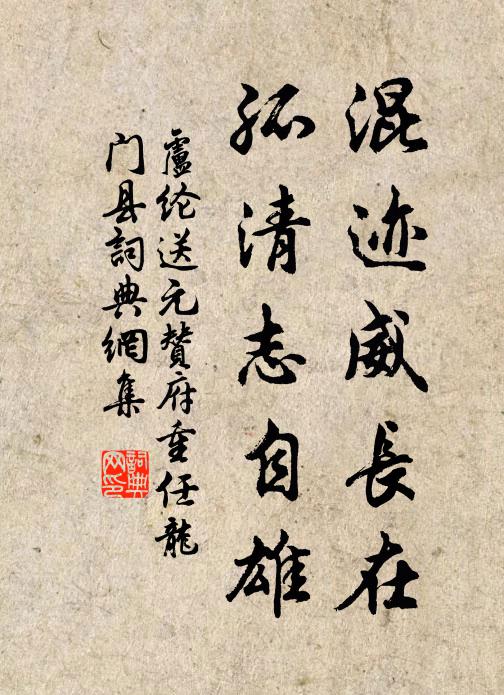 混迹威長在
孤清志自雄
盧纶送元贊府重任龍
门县詞典網集
詞典网印